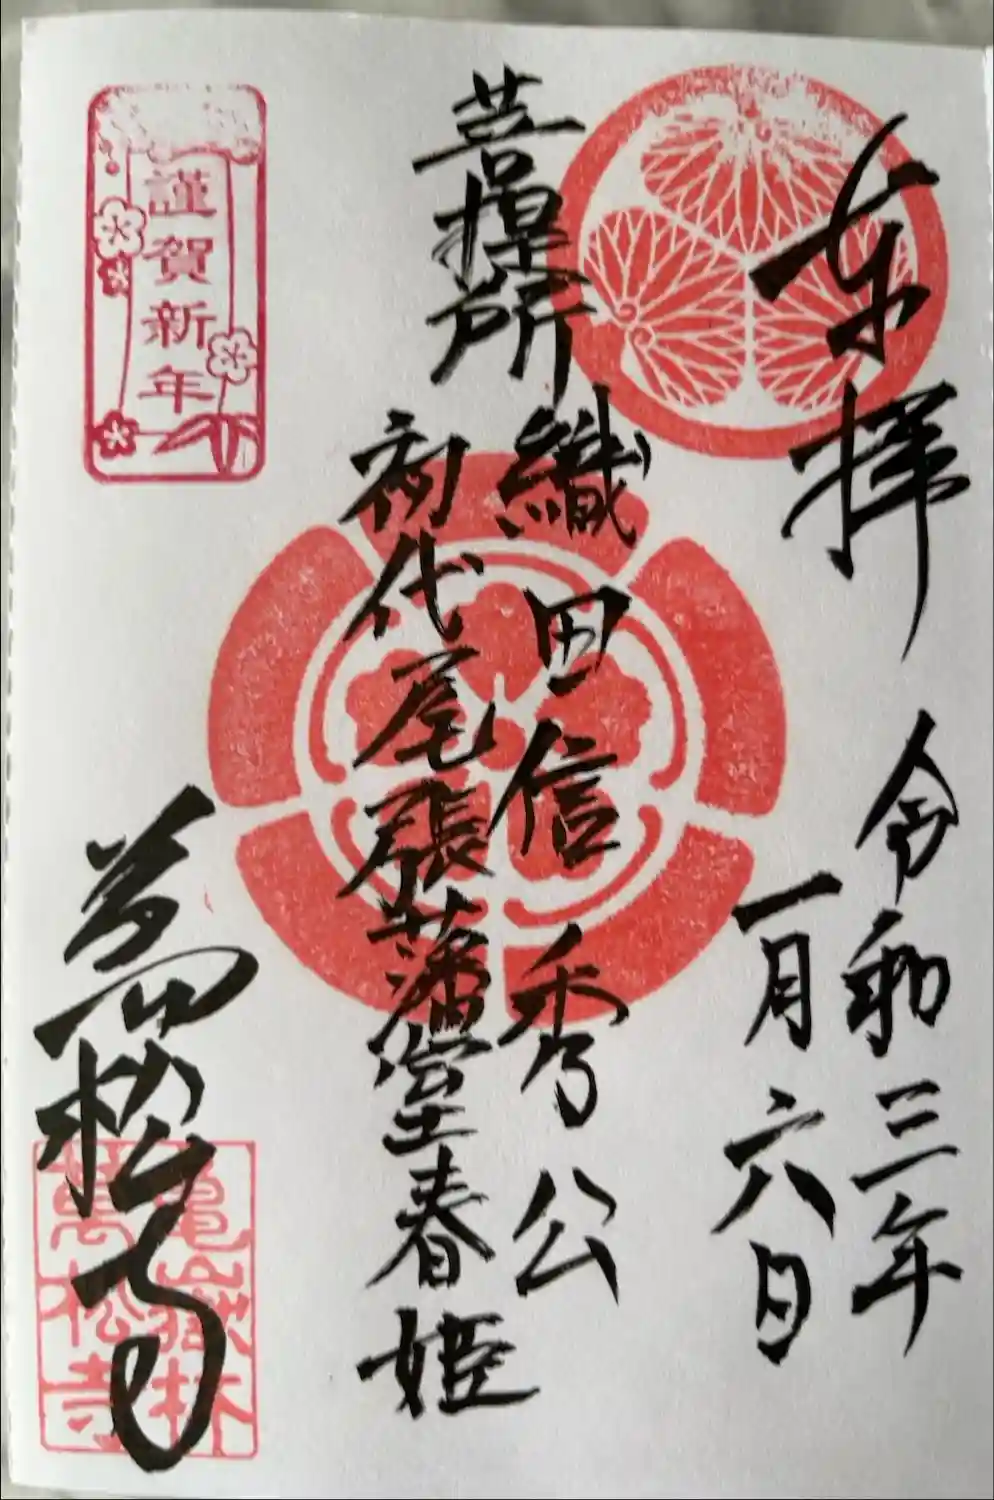 奉拝
令和三年
一月六日
菩提所
織田信秀公
初代尾張藩室春姫
萬松寺
謹賀新年
亀嶽林
萬松寺